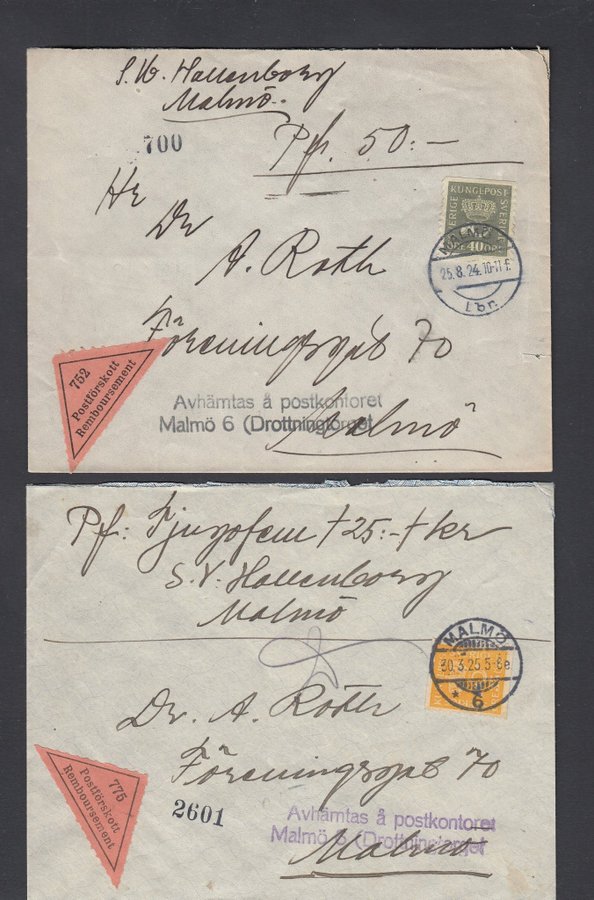 S. W. Hallenborg
Malmö.
700
Pf. 50:-
SVERIGE KUNGL·POST SVERIGE
40 ÖRE
MALMÖ
25.8.24.10-11 f.
Lbr.
Hr
Dr
A. Roth
Föreningsgat 70
Malmö
752
Postförskott
Remboursement
Avhämtas å postkontoret
Malmö 6 (Drottningtorget
Pf: Tjugofem /25:-/ kr
S. V. Hallenborg
Malmö
MALMÖ
30.3.25 5-6 e.
* 6
Dr. A. Roth
Föreningsgat 70
Malmö
775
Postförskott
Remboursement
2601
Avhämtas å postkontoret
Malmö 6 (Drottningtorget